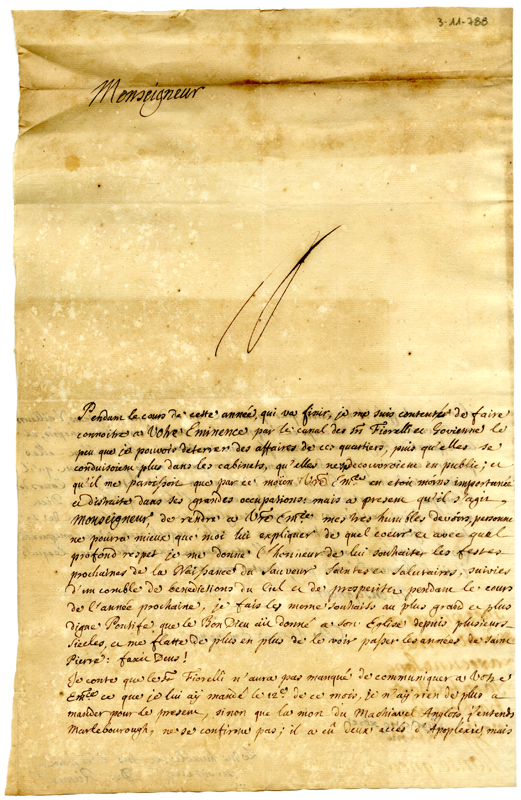 3-11-788
Monseigneur
Pendant le cours de cette année, qui va finir, je me suis contenté de faire
connoitre a Votre Eminence par le canal des Srs Fiorelli et Govienne le
peu que je pouvois deterrer des affaires de ces quartiers, puis qu'elles se
conduisoient plus dans les cabinets, qu'elles ne se decouvroient en public; et
qu'il me paroissoit que par ce moien Vtre Emce en etoit moins importunée
et distraite dans ses grandes occupations: mais a present qu'il s'agit,
Monseigneur, de rendre a Vtre Emce mes tres humbles devoirs, personne
ne pourra mieux que moi lui expliquer de quel coeur et avec quel
profond respet je me donne l'honneur de lui souhaiter les festes
prochaines de la Naissance du Sauveur saintes et salutaires, suivies
d'un comble de benedictions du Ciel et de prosperité pendant le cours
de l'année prochaine, je fais les meme souhaits au plus grand et plus
digne Pontife que le Bon Dieu ait donné a son Eglise depuis plusieurs
siecles, et me flatte de plus en plus de le voir passer les années de Saint
Pierre: faxit Deus!
Je conte que le Sr Fiorelli n'aura pas manqué de communiquer a Votre
Emce ce que je lui ay mandé le 12e de ce mois, je n'ay rien de plus a
mander pour le present, sinon que la mort du Machiavel Anglois, j'entends
Marlebourough, ne se confirme pas; il a eû deux accès d'Apoplexie, mais